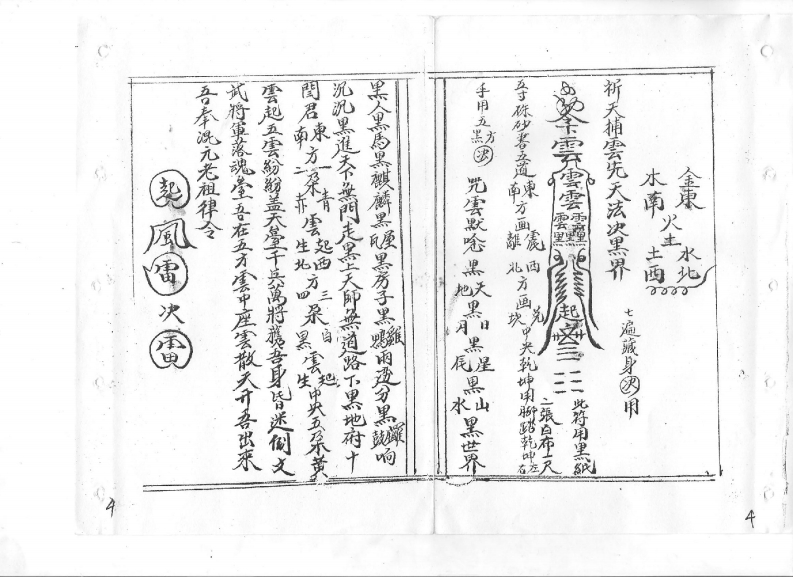 金東
水南
火
土
水北
土酉
七遍藏身決用
祈天捕雲先天法決黑界
雲
雲雲
雲
黑
起
此符用黑紙
二張白布一尺
五寸硃砂書五道東方画震西兌
南方画離北方画坎中央乾坤用脚踏乾坤左右
手用五方黑決
咒雲默唸黑天黑日黑星黑山
地月辰水黑世界
黑人黑馬黑麒麟黑瓦黑房子黑雞鴨雨
分黑鑼鼓响
沉沉黑進天下無門走黑上天師無道路下黑地府十
閻君東方一朵青雲起西方三朵白雲起中央五朵黃
南二赤生北四黑生
雲起五雲紛紛盖天臺千兵萬將護吾身皆迷倒文
武將軍落魂臺吾在五方雲中座雲散天开吾出來
吾奉混元老祖律令
起
風
雷
次
雷
4
4